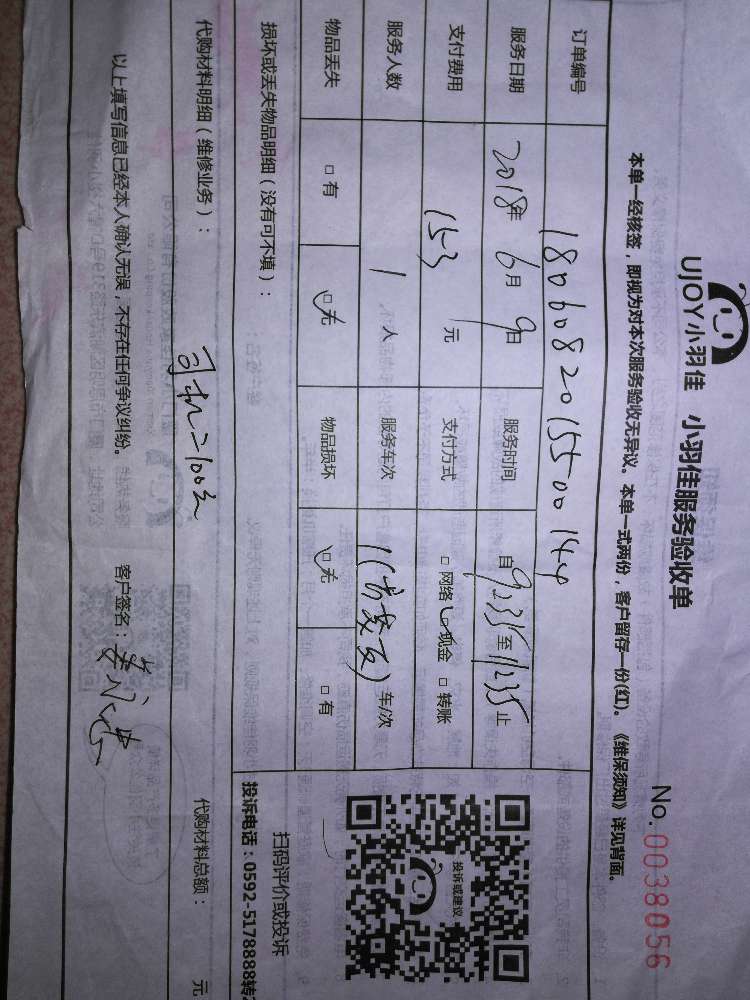 UJOY小羽佳 小羽佳服务验收单
No. 0038056
本单一经核签，即视为对本次服务验收无异议。本单一式两份，客户留存一份(红)。《维保须知》详见背面。
订单编号 1806082015500144
服务日期 2018年6月9日 服务时间 自9:35至11:35止
支付费用 153 元 支付方式 □网络 ☑现金 □转账
服务人数 1 人 服务车次 1( 车/次
物品丢失 □有 ☑无 物品损坏 ☑无 □有
损坏或丢失物品明细（没有可不填）：
代购材料明细（维修业务）： 代购材料总额： 元
司机二100元
以上填写信息已经本人确认无误，不存在任何争议纠纷。 客户签名：
投诉或建议
扫码评价或投诉
投诉电话：0592-5178888转